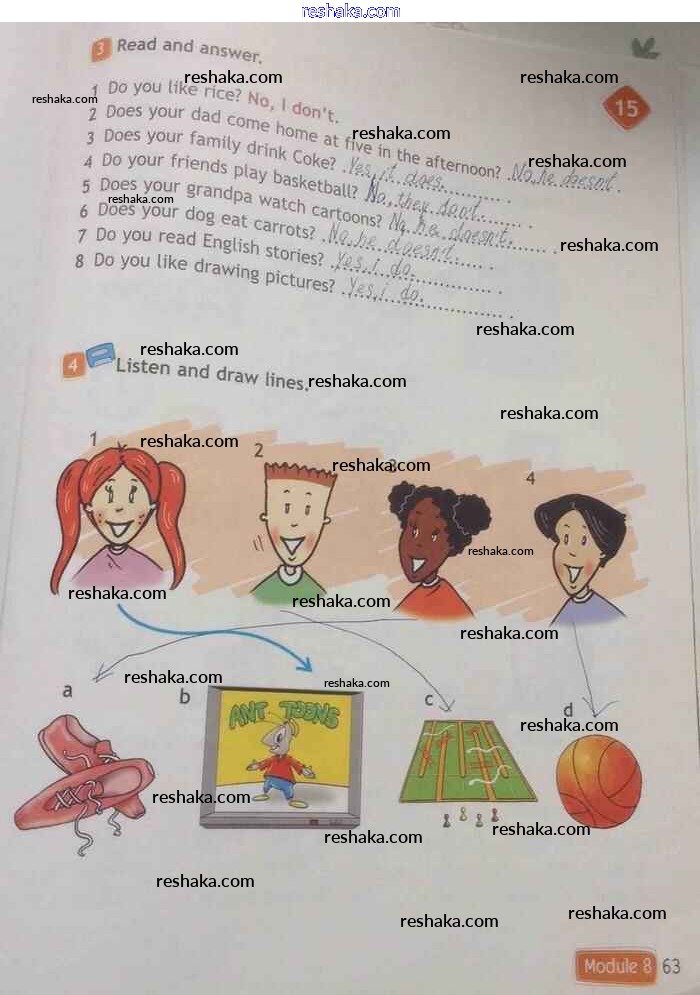 reshaka.com
3 Read and answer.
15
1 Do you like rice? No, I don't.
2 Does your dad come home at five in the afternoon? No, he doesn't.
3 Does your family drink Coke? Yes, it does.
4 Do your friends play basketball? No, they don't.
5 Does your grandpa watch cartoons? No, he doesn't.
6 Does your dog eat carrots? No, he doesn't.
7 Do you read English stories? Yes, i do.
8 Do you like drawing pictures? Yes, i do.
reshaka.com reshaka.com
reshaka.com reshaka.com
reshaka.com
reshaka.com
reshaka.com
reshaka.com
4 Listen and draw lines.
reshaka.com
reshaka.com
reshaka.com
1 2 3 4
reshaka.com
reshaka.com
reshaka.com
reshaka.com
reshaka.com
reshaka.com
a b c d
reshaka.com
reshaka.com
ANT TOONS
reshaka.com
reshaka.com
reshaka.com
reshaka.com
reshaka.com
reshaka.com
reshaka.com
Module 8 63